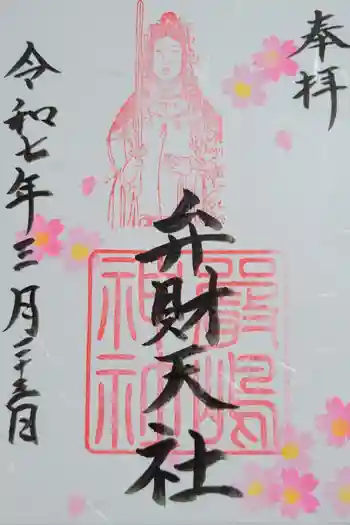 奉拝
嚴嶋
神社
弁財天社
令和七年三月二十五日